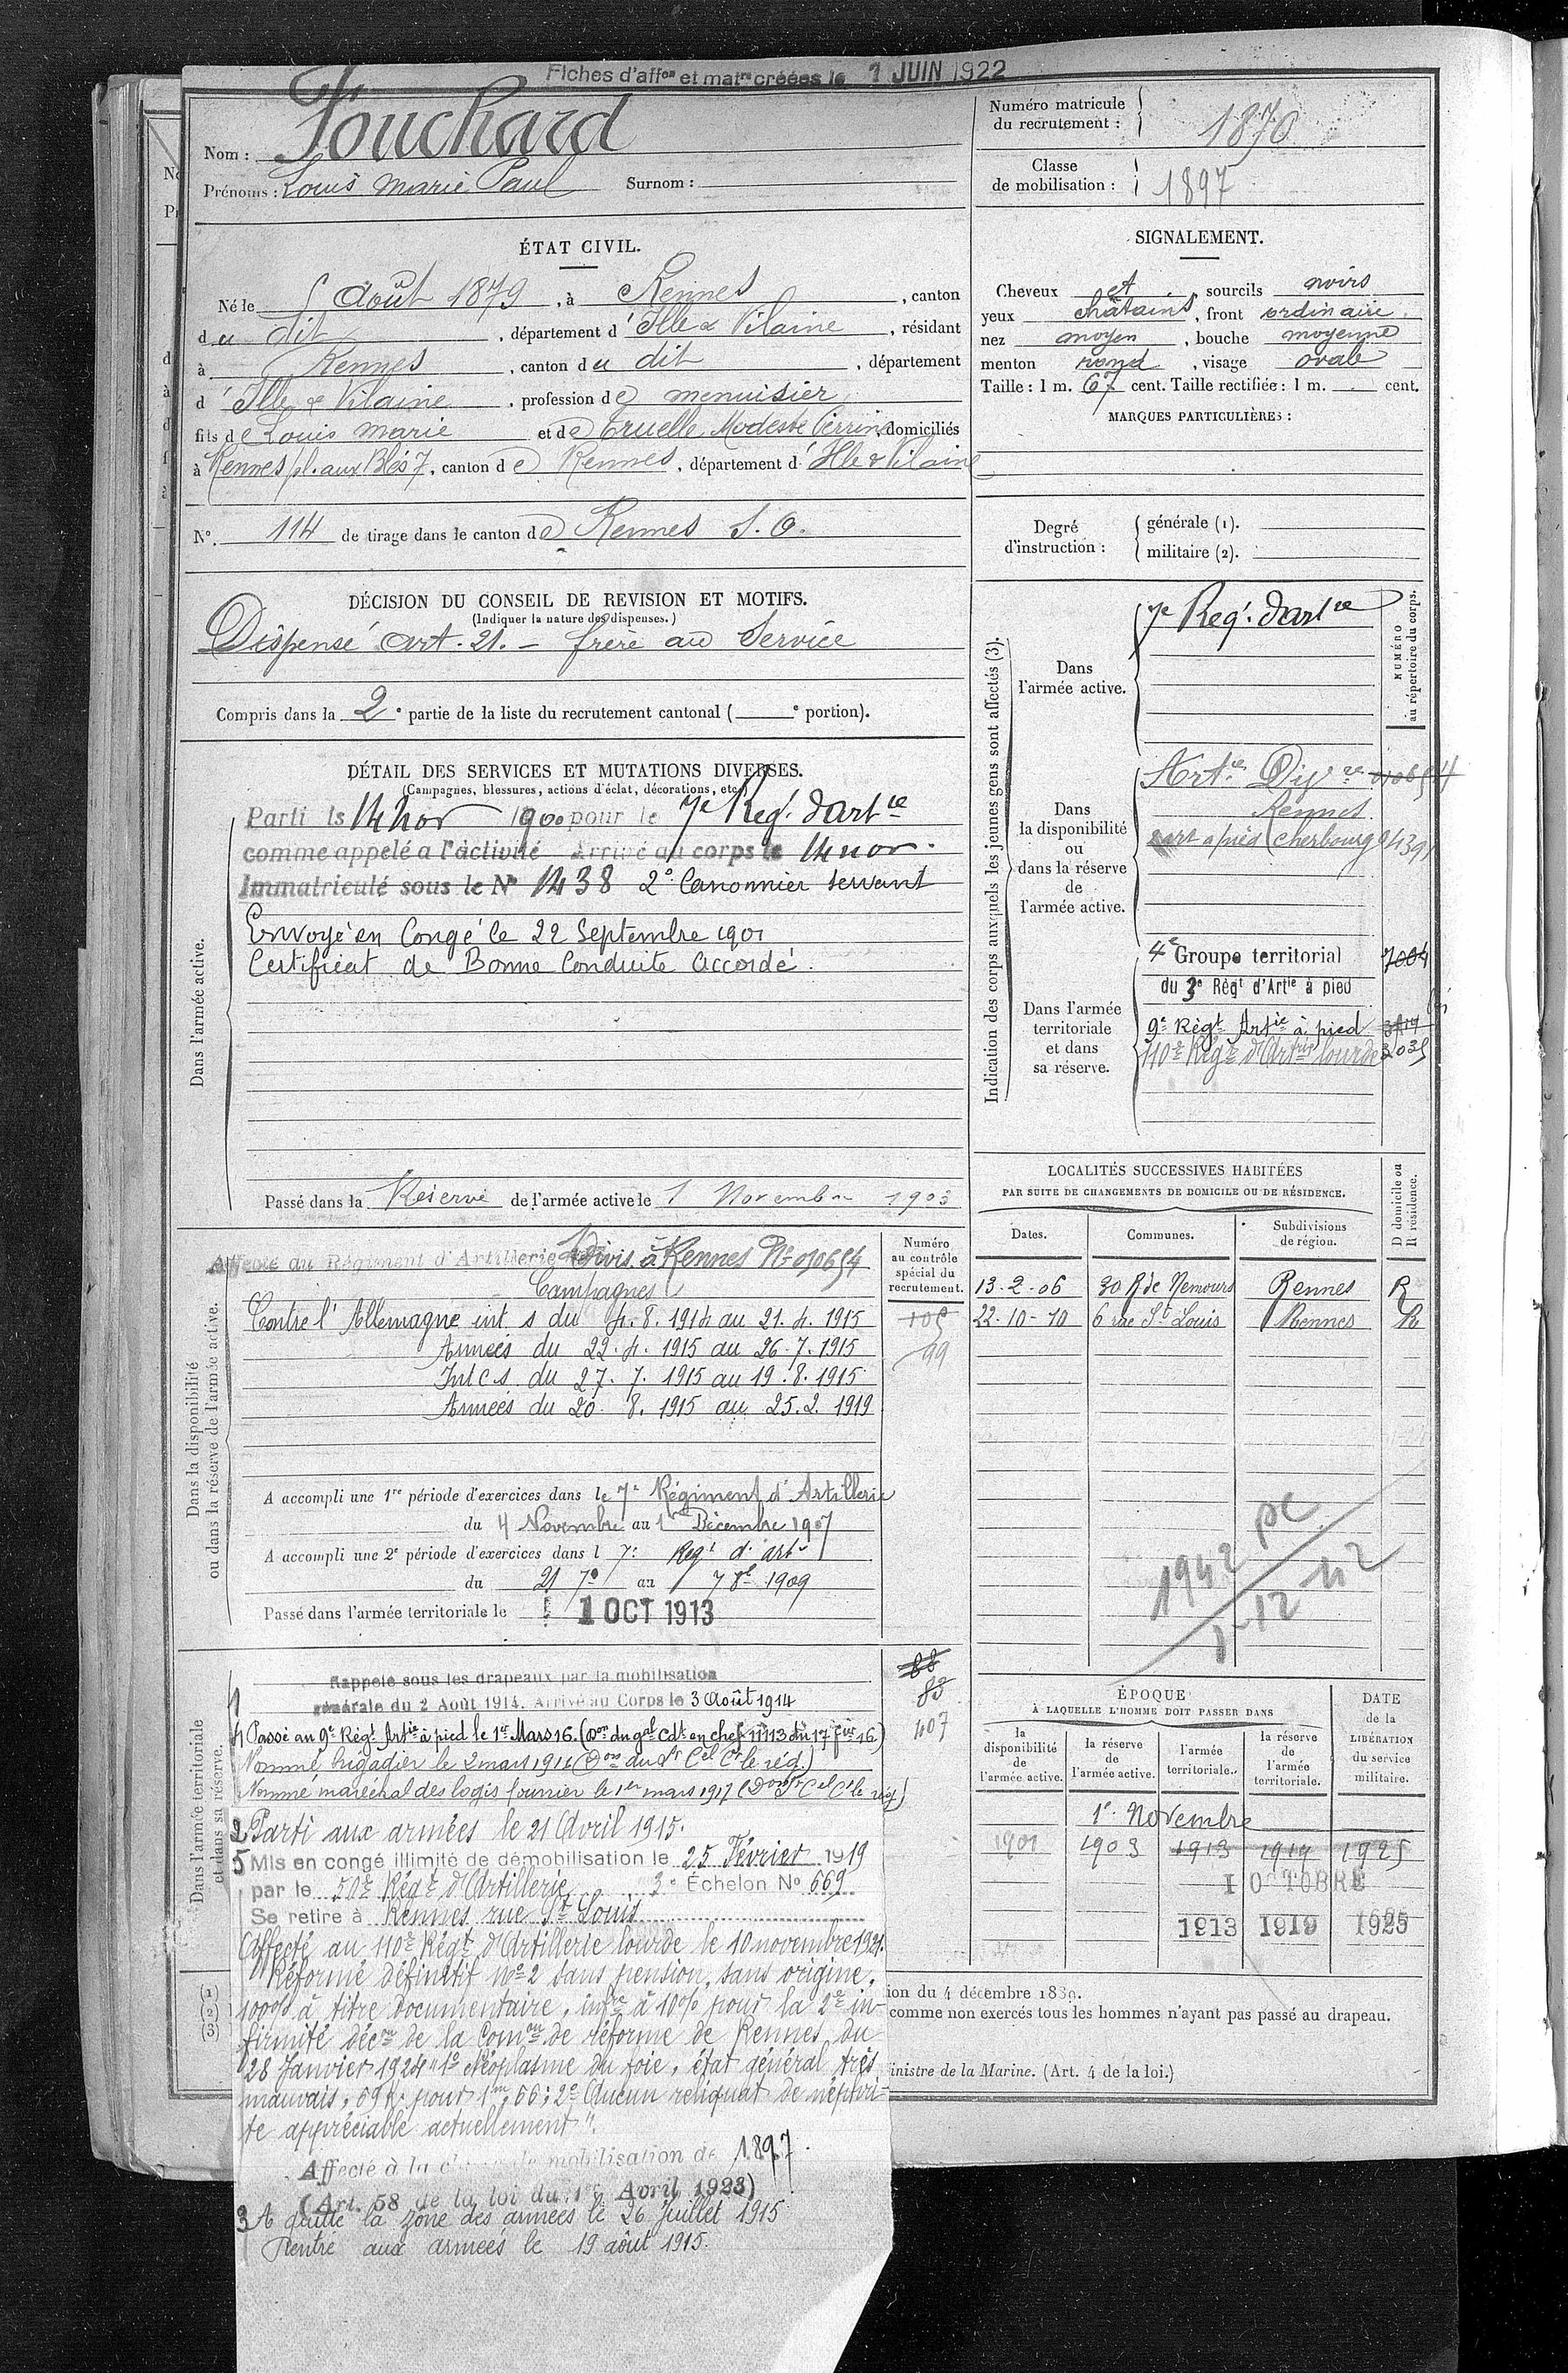 Fiches d'affon et matre créées le 1 JUIN 1922
Nom : Fouchard
Prénoms : Louis Marie Paul Surnom :
ÉTAT CIVIL.
Né le 5 Août 1879, à Rennes, canton
du dit, département d'Ille & Vilaine, résidant
à Rennes, canton du dit, département
d'Ille & Vilaine, profession de menuisier
fils de Louis Marie et de Cruelle Modeste Perrine, domiciliés
à Rennes pl. aux Blés 7, canton de Rennes, département d'Ille & Vilaine
N°. 114 de tirage dans le canton de Rennes S. O.
DÉCISION DU CONSEIL DE REVISION ET MOTIFS.
(Indiquer la nature des dispenses.)
Dispensé art. 21. - frère au service
Compris dans la 2e partie de la liste du recrutement cantonal ( e portion).
DÉTAIL DES SERVICES ET MUTATIONS DIVERSES.
(Campagnes, blessures, actions d'éclat, décorations, etc.)
Dans l'armée active.
Parti le 14 nov 1900 pour le 7e Reg. d'artie
comme appelé a l'activité Arrivé au corps le 14 nov.
Immatriculé sous le N° 1438 2e Canonnier servant
Envoyé en Congé le 22 Septembre 1901
Certificat de Bonne Conduite Accordé.
Passé dans la Réserve de l'armée active le 1 Novembre 1903
Dans la disponibilité
ou dans la réserve de l'armée active.
Affecté au Régiment d'Artillerie Divis. à Rennes No 010654
Campagnes
Contre l'Allemagne int. s du 4.8.1914 au 21.4.1915
Armées du 22.4.1915 au 26.7.1915
Int c s du 27.7.1915 au 19.8.1915
Armées du 20.8.1915 au 25.2.1919
A accompli une 1re période d'exercices dans le 7e Régiment d'Artillerie
du 4 Novembre au 1er Décembre 1907
A accompli une 2e période d'exercices dans l 7e Regt d'artie
du 21 7e au 7 8e 1909
Passé dans l'armée territoriale le 1 OCT 1913
Numéro
au contrôle
spécial du
recrutement.
105
99
Dans l'armée territoriale
et dans sa réserve.
Rappelé sous les drapeaux par la mobilisation
générale du 2 Août 1914. Arrivé au Corps le 3 Août 1914
88
83
407
4 Passé au 9e Régt Artie à pied le 1er Mars 16. (Don du gal Cdt en chef 11113 du 17 fier 16)
Nommé brigadier le 2 mars 1916 (Don du Lt Cel Ct le rég.)
Nommé maréchal des logis fourrier le 1er mars 1917 (Don Lt Cel Ct le rég)
2 Parti aux armées le 21 Avril 1915.
5 Mis en congé illimité de démobilisation le 25 Février 1919
par le 50e Régt d'Artillerie 3e Échelon No 669
Se retire à Rennes rue St Louis
Affecté au 110e Régt d'Artillerie lourde le 10 novembre 1921.
Réformé définitif no 2 sans pension, sans origine.
100% à titre documentaire, infre à 10% pour la 2e in-
firmité décon de la Comon de réforme de Rennes du
28 Janvier 1924 "1o Néoplasme du foie, état général très
mauvais, 59k. pour 1m,66; 2o Aucun reliquat de néphri-
te appréciable actuellement".
Affecté à la classe de mobilisation de 1897.
(Art. 58 de la loi du 1er Avril 1923)
3 A quitté la zone des armées le 26 Juillet 1915
Rentré aux armées le 19 août 1915.
Numéro matricule
du recrutement : 1870
Classe
de mobilisation : 1897
SIGNALEMENT.
Cheveux et, sourcils noirs
yeux châtains, front ordinaire
nez moyen, bouche moyenne
menton rond, visage ovale
Taille : 1 m. 67 cent. Taille rectifiée : 1 m. cent.
MARQUES PARTICULIÈRES :
Degré
d'instruction :
générale (1).
militaire (2).
Indication des corps auxquels les jeunes gens sont affectés (3).
NUMÉRO
au répertoire du corps.
Dans
l'armée active.
7e Reg. d'artie
Dans
la disponibilité
ou
dans la réserve
de
l'armée active.
Artie Divre 010654
Rennes
art à pied Cherbourg
Dans l'armée
territoriale
et dans
sa réserve.
4e Groupe territorial 7004
du 3e Régt d'Artie à pied
9e Régt Artie à pied
110e Régt d'Artrie lourde 3035
LOCALITÉS SUCCESSIVES HABITÉES
PAR SUITE DE CHANGEMENTS DE DOMICILE OU DE RÉSIDENCE.
Dates. Communes. Subdivisions
de région. D domicile ou
R résidence.
13-2-06 30 R de Nemours Rennes R
22-10-10 6 rue St Louis Rennes R
1942 pc
1-12-42
ÉPOQUE
À LAQUELLE L'HOMME DOIT PASSER DANS
DATE
de la
LIBÉRATION
du service
militaire.
la
disponibilité
de
l'armée active.
la réserve
de
l'armée active.
l'armée
territoriale.
la réserve
de
l'armée
territoriale.
1er Novembre
1901 1903 1913 1919 1925
1 OCTOBRE
1913 1919 1925
(1)
(2)
(3)
ion du 4 décembre 1889.
comme non exercés tous les hommes n'ayant pas passé au drapeau.
inistre de la Marine. (Art. 4 de la loi.)